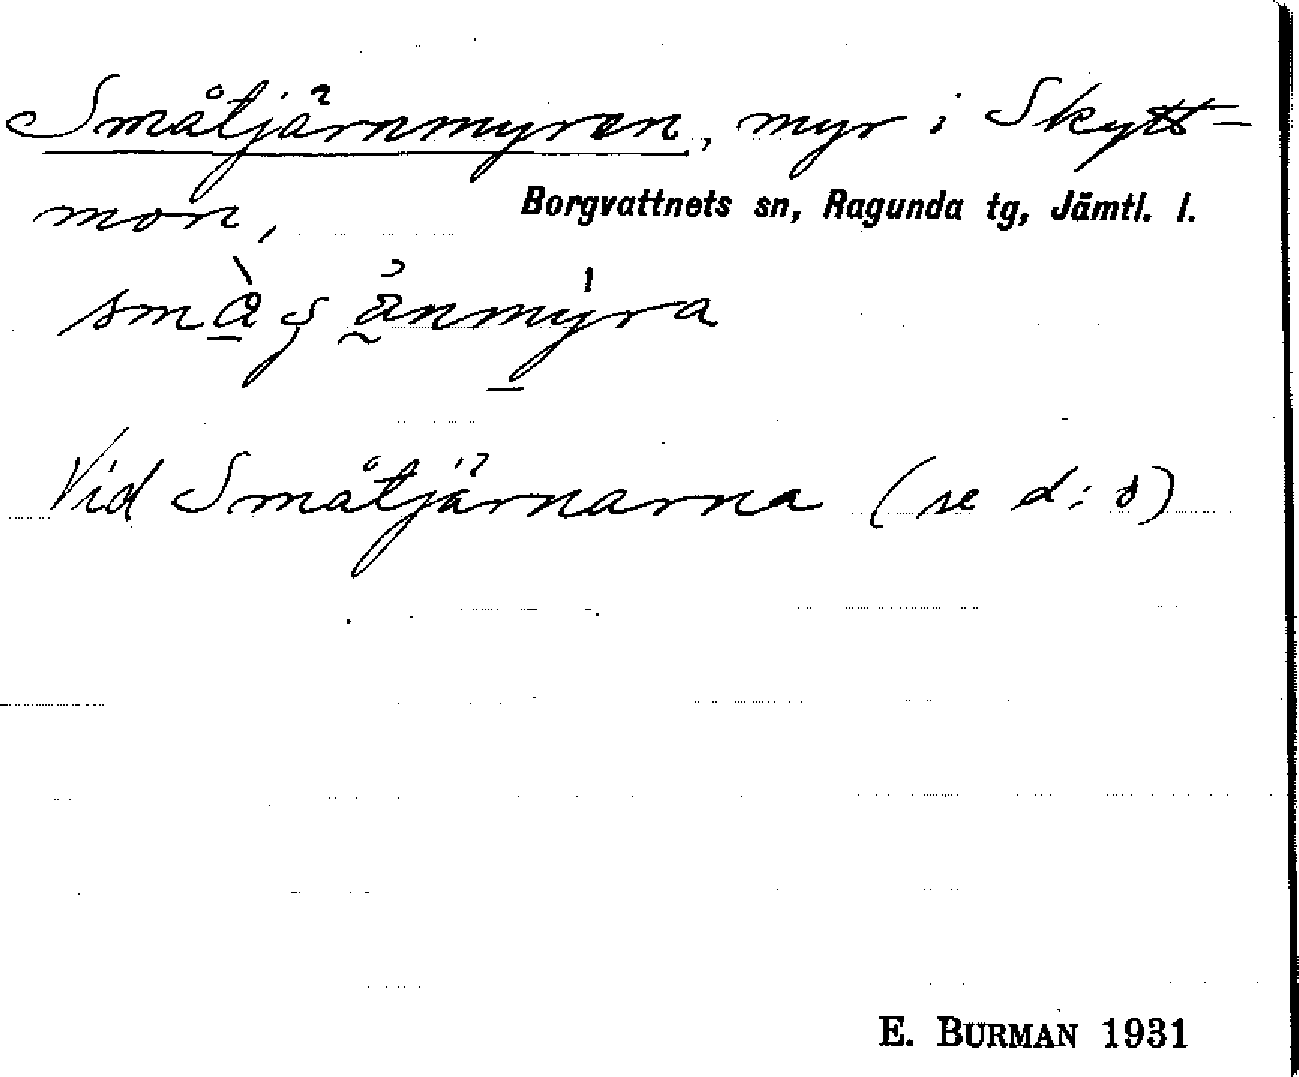 Småtjärnmyren, myr i Skytt-
mon,
Borgvattnets sn, Ragunda tg, Jämtl. l.
små̀ʂänmýra
Vid Småtjärnarna (se d:o)
E. BURMAN 1931